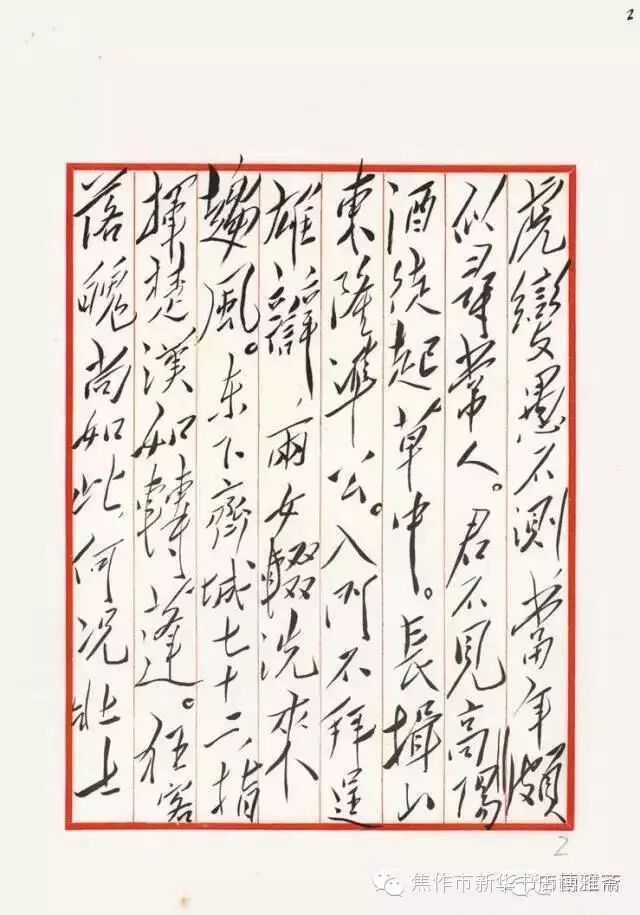 2
虎變愚不測當年頗
似尋常人。君不見高陽
酒徒起草中。長揖山
東隆準公。入门不拜逞
雄辯，兩女輟洗來
趨風。东下齊城七十二，指
揮楚漢如轉蓬。狂客
落魄尚如此，何况壯士
2
焦作市新华书店博雅斋